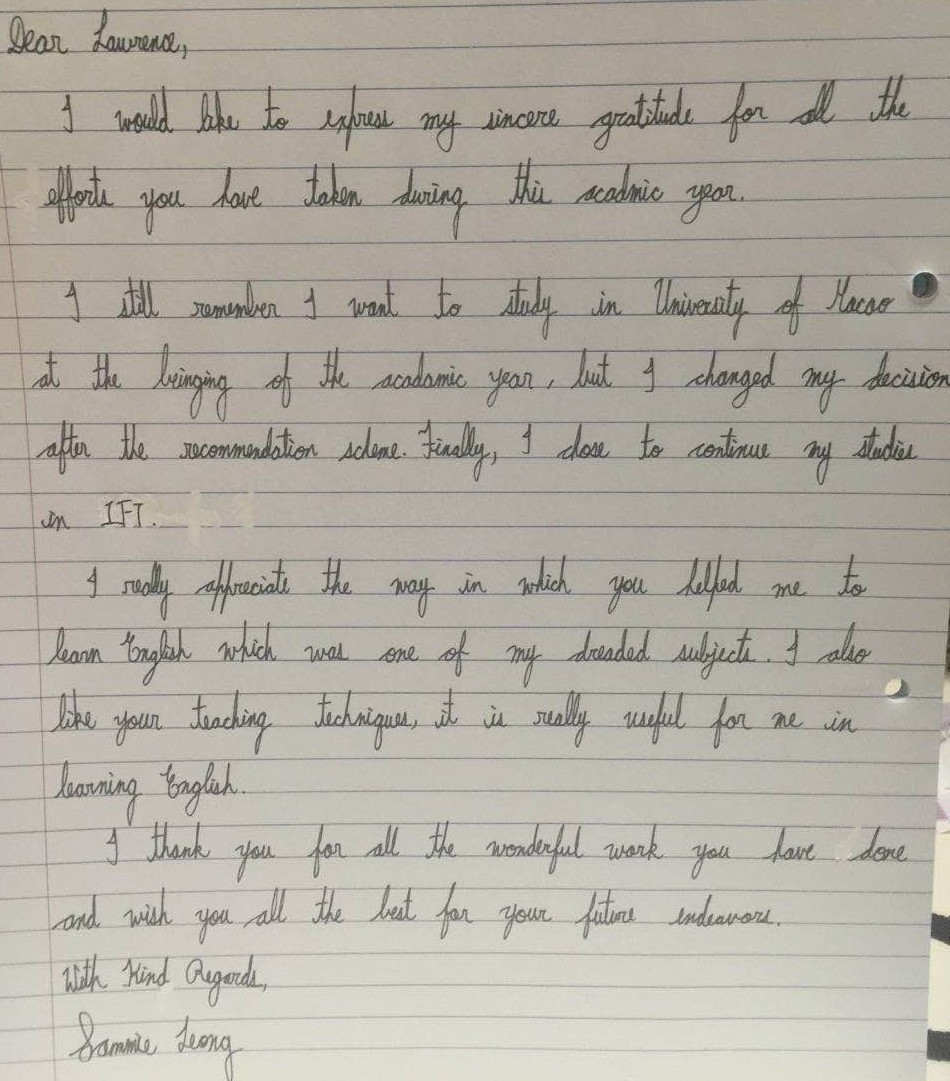 Dear Lawrence,
I would like to express my sincere gratitude for all the
efforts you have taken during this acadmic year.
I still remember I want to study in University of Macao
at the bringing of the acadamic year, but I changed my decision
after the recommendation scheme. Finally, I chose to continue my studies
in IFT.
I really appreciate the way in which you helped me to
learn English which was one of my dreaded subjects. I also
like your teaching techniques, it is really useful for me in
learning English.
I thank you for all the wonderful work you have done
and wish you all the best for your future endeavors.
With Kind Regards,
Sammie Leong